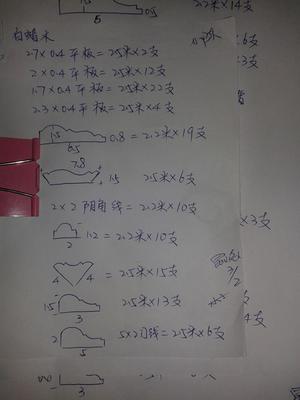 5 0.5 2.2米×14支
白蜡木
2.7×0.4平板=2.5米×2支
×6支
2×0.4平板=2.5米×12支
×3支
1.7×0.4平板=2.5米×22支
2.3×0.4平板=2.5米×4支
1.5 0.8=2.2米×19支
6.5
7.8
1.5 2.5米×6支
2×2阴角线=2.2米×10支
×3支
1.2=2.2米×10支
2
4 4 =2.5米×15支
3/2
1.5 2.5米×13支
3
支
4支
2 5×2门线=2.5米×6支
5
3